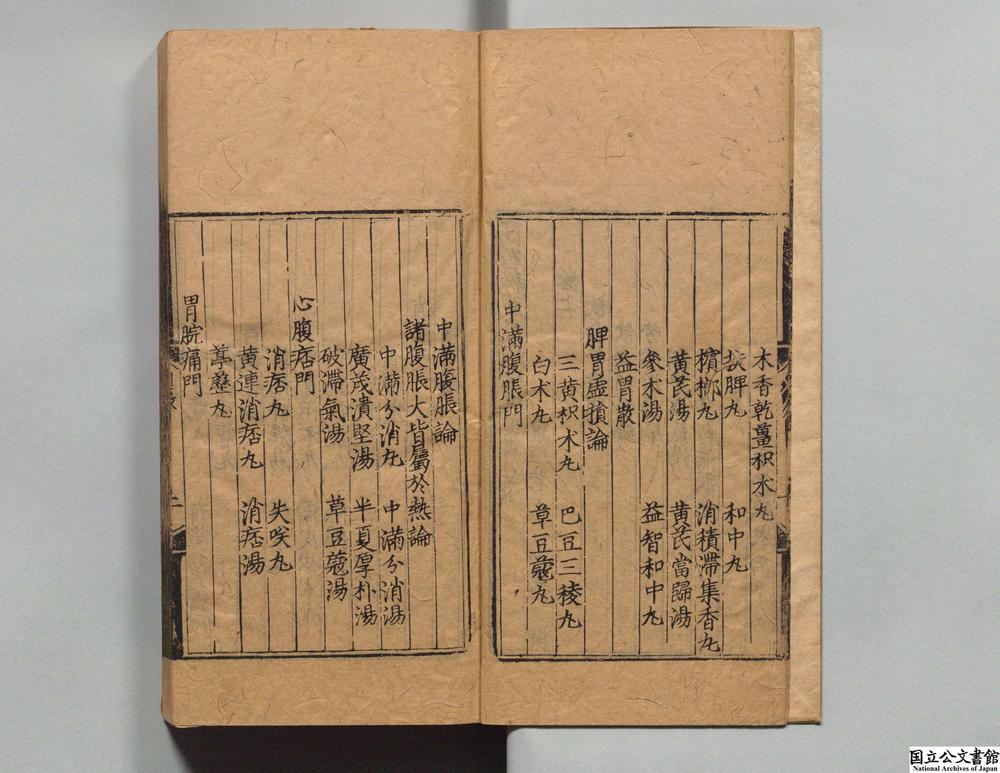 木香乾薑枳木丸
扶脾丸 和中丸
檳榔丸 消積滯集香丸
黄芪湯 黄芪當歸湯
參木湯 益智和中丸
益胃散
脾胃虛損論
三黄枳木丸 巴豆三稜丸
白木丸 草豆蔻丸
中滿腹脹門
中滿腹脹論
諸腹脹大皆屬於熱論
中滿分消丸 中滿分消湯
廣茂潰堅湯 半夏厚朴湯
破滯氣湯 草豆蔻湯
心腹痞門
消痞丸 失咲丸
黄連消痞丸 消痞湯
葶藶丸
胃脘痛門
二
国立公文書館
National Archives of Japan